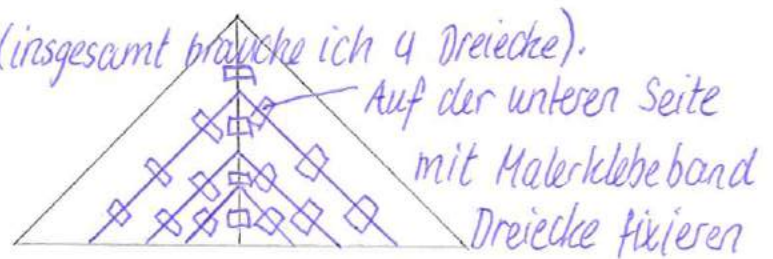 (insgesamt brauche ich 4 Dreiecke).
Auf der unteren Seite
mit Malerklebeband
Dreiecke fixieren